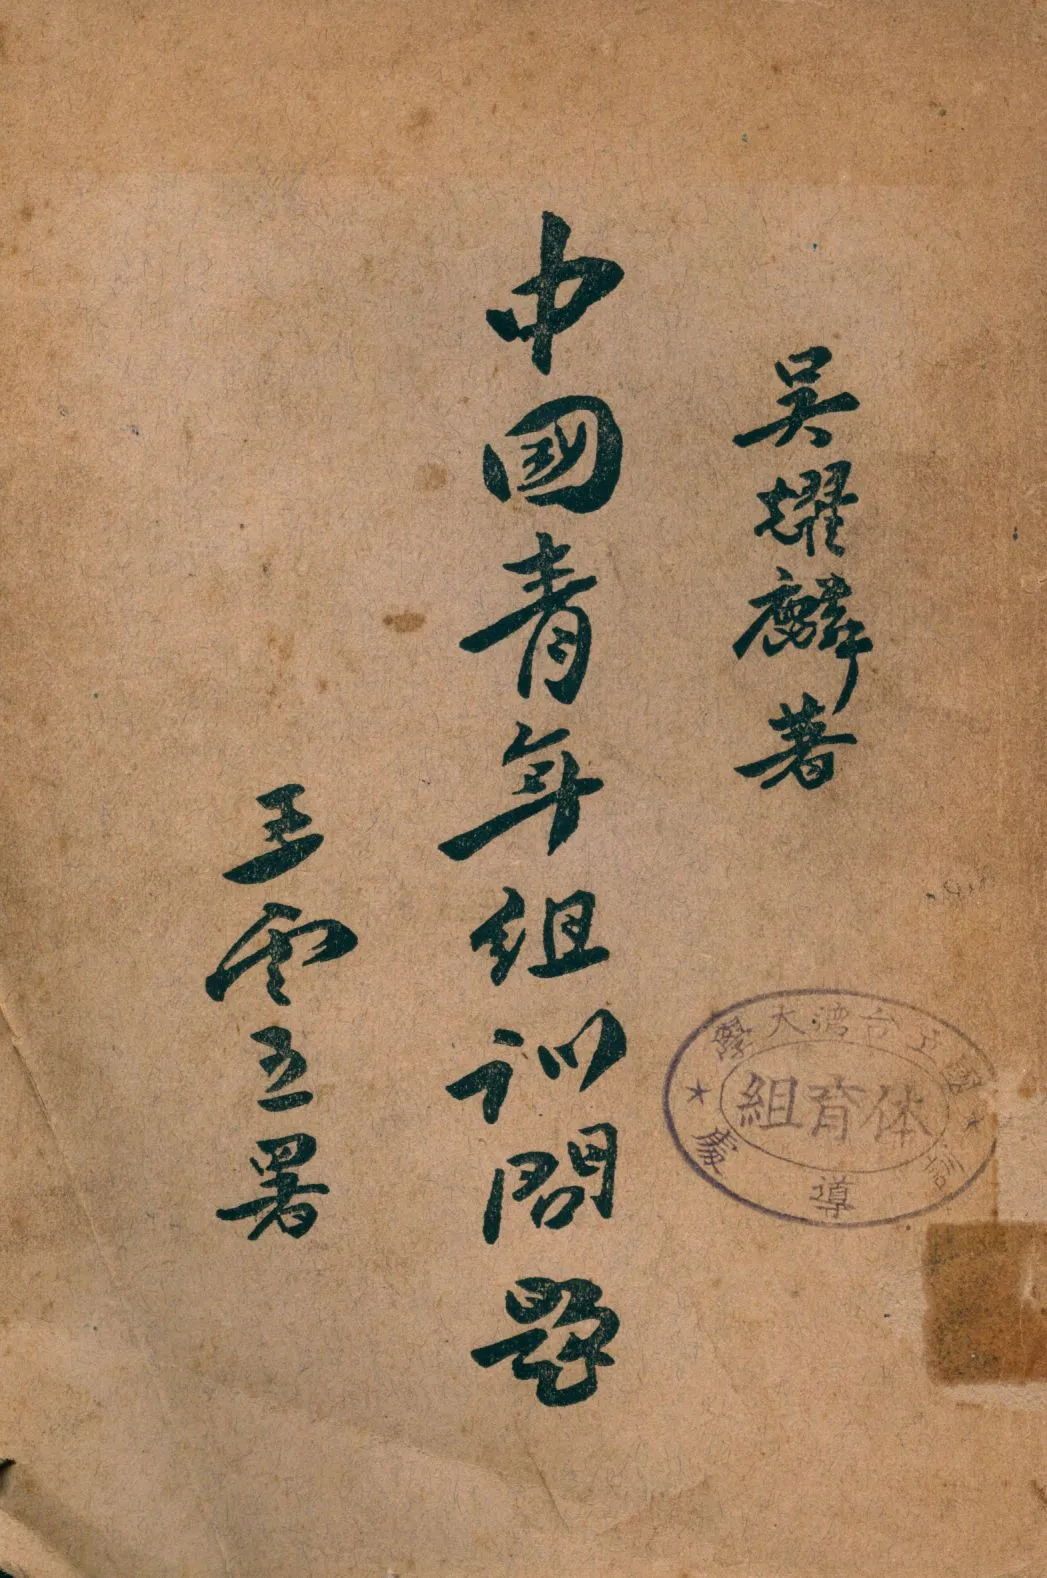 吳耀麟著
中國青年組訓問題
王雲五署
國立台湾大學
體育組
訓導處